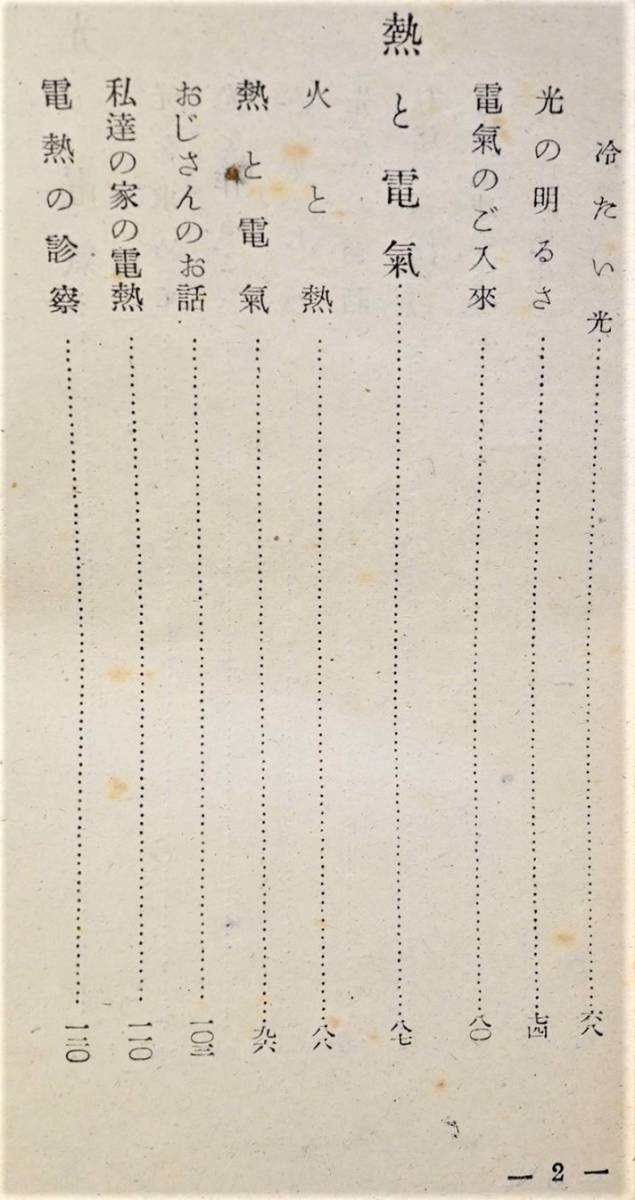 冷たい光……六八
光の明るさ……七四
電氣のご入來……八〇
熱と電氣……八七
火と熱……八八
熱と電氣……九六
おじさんのお話……一〇三
私達の家の電熱……一一〇
電熱の診察……一二〇
— 2 —